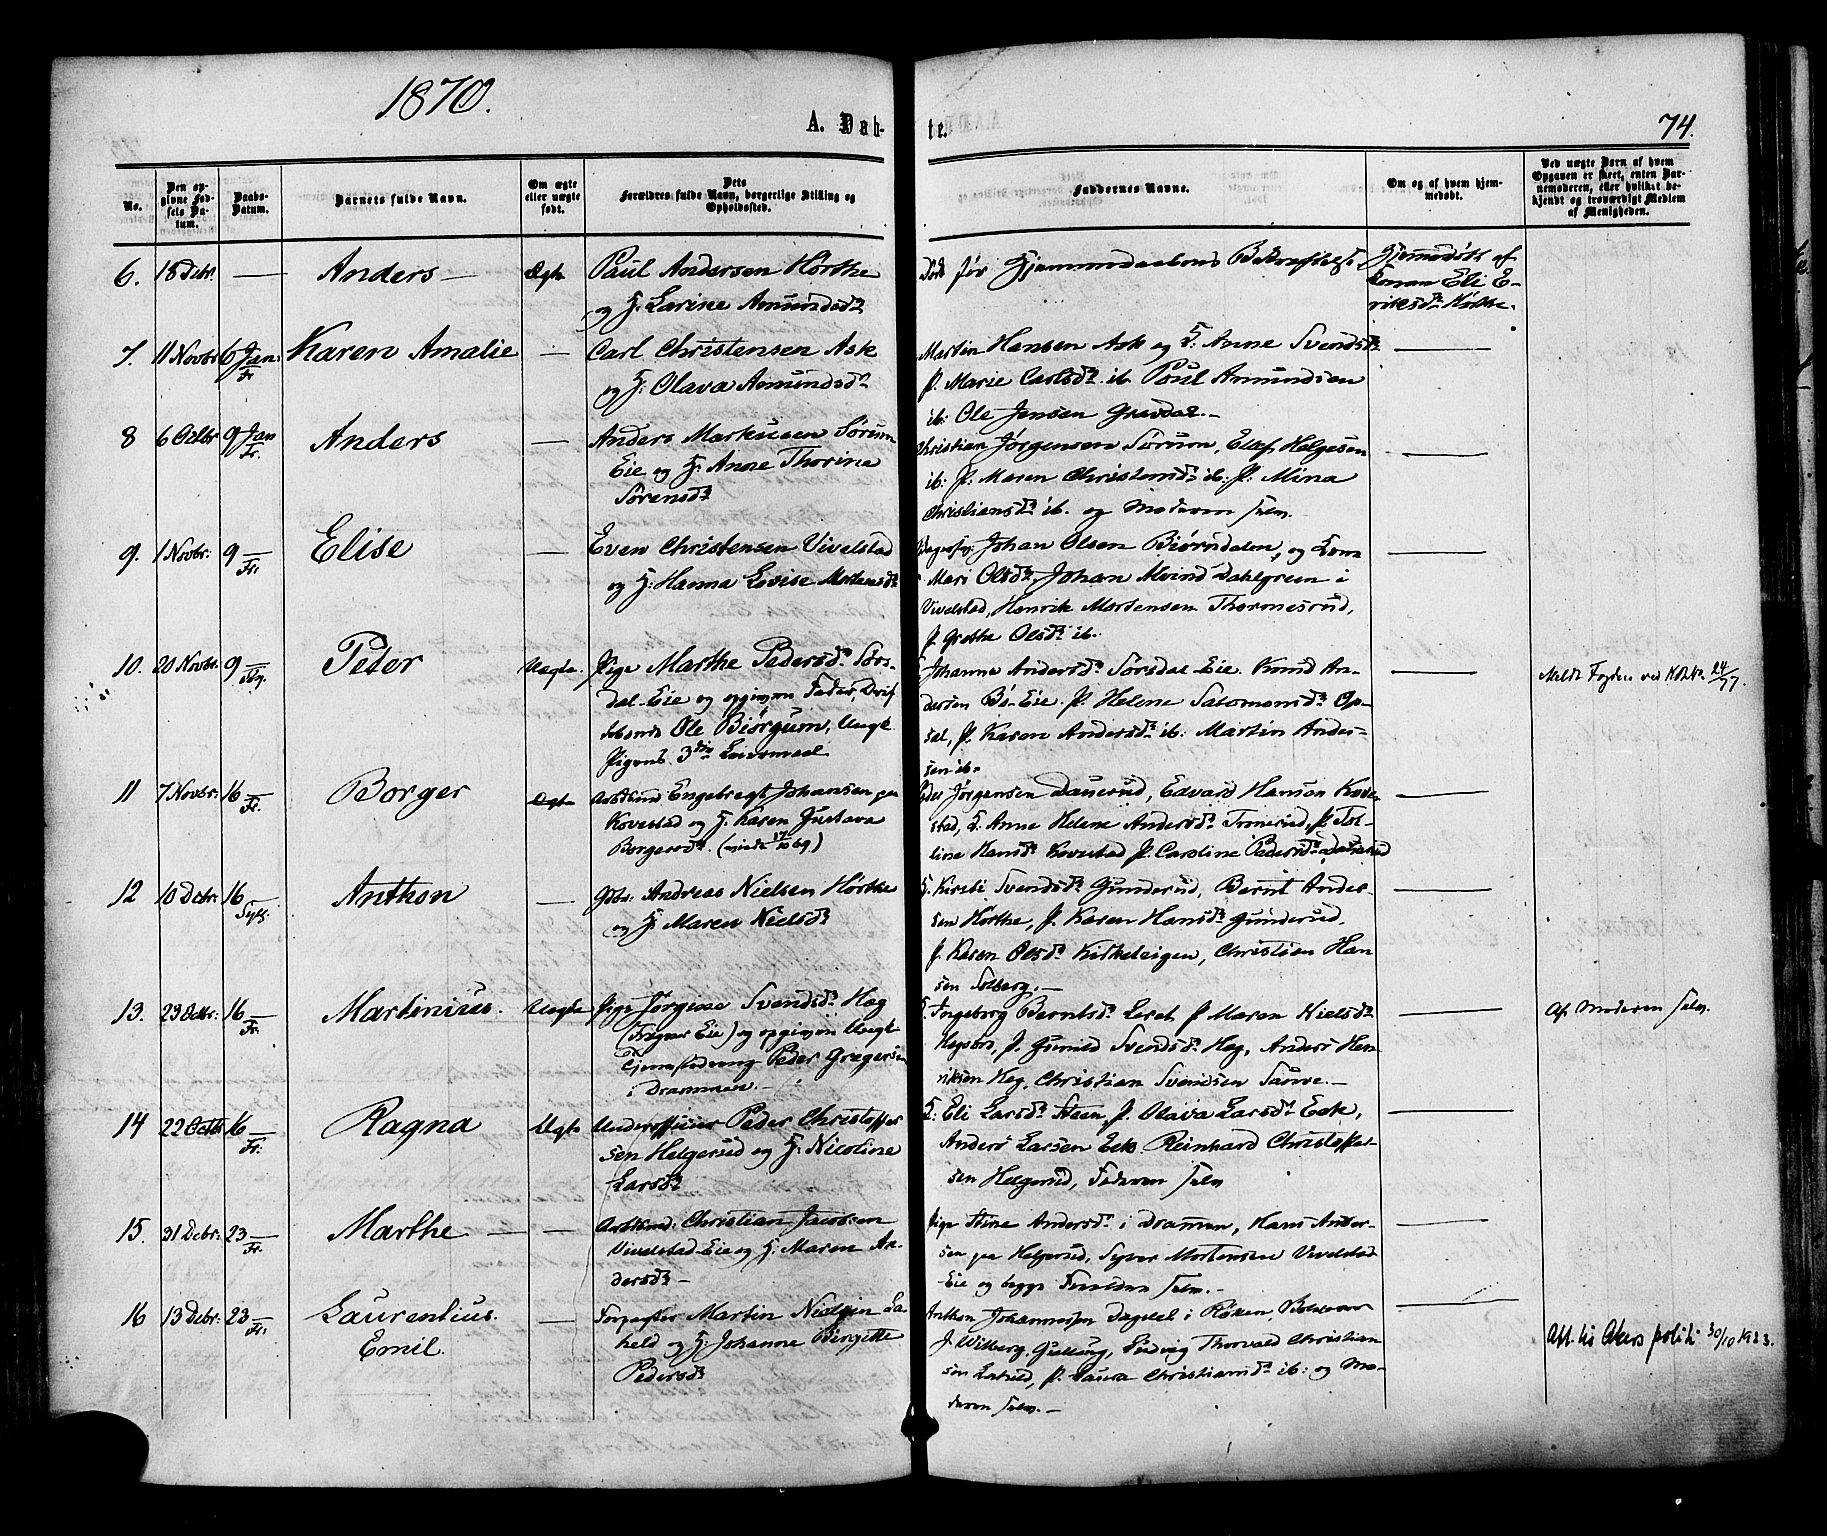 1870.
A. Døb-
te.
74.
No.
Den op-
givne Fød-
sels Da-
tum.
Daabs-
Datum.
Barnets fulde Navn.
Om ægte
eller uægte
født.
Dets
Forældres fulde Navn, borgerlige Stilling og
Opholdssted.
Faddernes Navne.
Om og af hvem hjem-
medøbt.
Ved uægte Børn af hvem
Opgaven er skeet, enten Bar-
nemoderen, eller hvilket be-
kjendt og troværdigt Medlem
af Menigheden.
6. 18 Debr. — Anders — Ægte Paul Andersen Hörthe
og H. Larine Amundsdr
Död för Hjemmedaabens Bekræftelse
Hjemmedöbt af
Konen Eli E-
riksdr Hörthe.
7. 11 Novbr 6 Jan Fr. Karen Amalie — Carl Christensen Ask
og H. Olava Amundsdr
Martin Hansen Ask og K. Anne Svendsdr
P. Marie Carlsdr ib. Poul Amundsen
ib: Ole Jensen Gravdal. —
8 6 Octbr 9 Jan Fr. Anders — Anders Markusen Sörum
Eie og H. Anne Thorine
Sörensdr
Christian Jörgensen Sörum, Ellef Helgesen
ib: P. Maren Christensdr ib: P. Mina
Christiansdr ib. og Moderen selv.
9. 1 Novbr: 9 Fr: Elise — Even Christensen Vivelstad
og H. Hanna Lovise Mortensdr
Johan Olsen Biörndalen, og Kone
Mari Olsdr, Johan Alvind Dahlgreen i
Vivelstad, Henrik Mortensen Thormesrud,
P. Grethe Olsdr ib.
10. 20 Novbr. 9 Peter Uægte. Pige Marthe Pedersdr Sörs-
dal-Eie og opgiven Fader,
Ole Biörgum, Uægt
Pigens 3die Leiermaal
Johanne Andersdr Sörsdal-Eie. Knud An-
dersen Bö-Eie. P. Helene Salomonsdr Op-
sal, P. Karen Andersdr ib: Martin Ander-
sen ib.
11 7 Novbr: 16 Fr. Borger Ægte Engebregt Johansen paa
Kovestad og H. Karen Gustava
Borgersdr. (viede 17/10 69)
Peder Jörgensen Dauerud, Edvard Hansen Kove-
stad, K. Anne Helene Andersdr Tronerud, P.
line Hansdr Kovestad P. Caroline Pedersdr Dauerud
12 10 Debr: 16 Anthon — Gdbr: Andreas Nielsen Hörthe
og H. Maren Nielsdr
K. Kirsti Svendsdr Gunderud, Bernt Ander-
sen Hörthe, P. Karen Hansdr Gunderud,
P. Karen Olsdr Kirketeigen, Christian Han
sen Solberg. —
13. 23 Octbr: 16 Fr: Martinius. Uægte Pige Jörgine Svendsdr Hag
(Fregner Eie) og opgiven Uægt
Peder Gregersen
i Drammen. —
K. Ingeborg Berntsdr Leret P. Maren Nielsdr
Hagebro, P. Gunild Svendsdr Hag, Anders Hen-
riksen Hag, Christian Svendsen Sauve. —
Af Moderen selv.
14 22 Octbr 16 Fr. Ragna Ægte Underofficier Peder Christoffer
sen Helgerud og H. Nicoline
Larsdr
K: Eli Larsdr Steen, P. Olava Larsdr Eek,
Anders Larsen Eek. Reinhard Christoffer-
sen Helgerud, Faderen selv
15. 31 Debr: 23 Fr. Marthe — Christian Jacobsen
Vivelstad-Eie og H. Maren An-
dersdr —
Pige Stine Andersdr i Drammen, Hans Ander-
sen paa Helgerud, Syver Mortensen Vivelstad
Eie og begge Forældre selv. —
16 13 Debr: 23 Fr. Laurentius
Emil. — Forpagter Martin Nielsen La-
held og H. Johanne Birgitte
Pedersdr
Anthon Johannessen Dagslet i Röken,
J. Wilberg, Gullaug, Ludvig Thorvald Christian
sen, P. Laura Christiansdr ib: og Mo-
deren selv. —
Att. til Akers politi 30/10 1923.